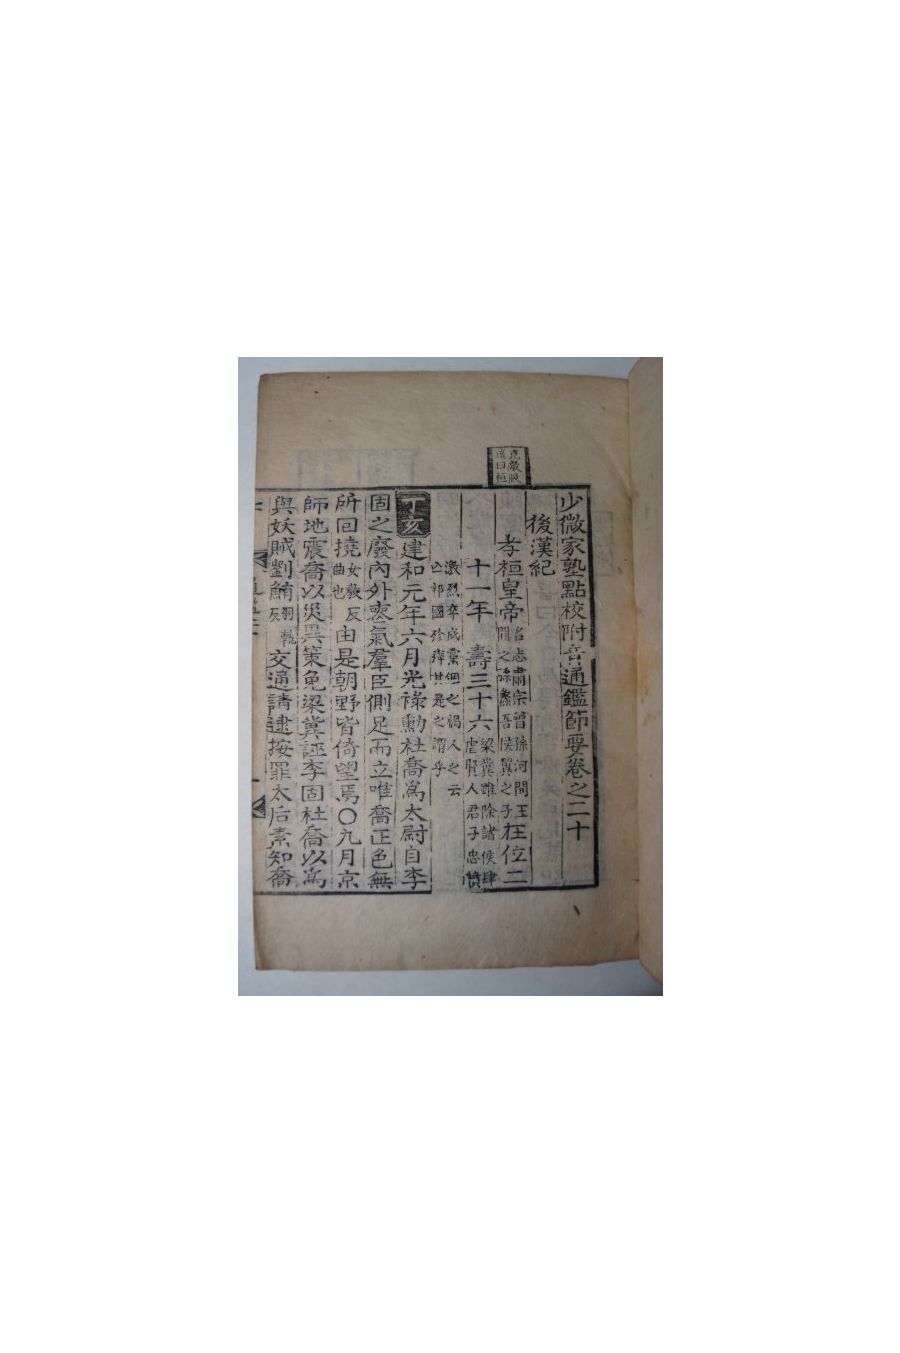 克敵服遠曰桓
少微家塾點校附音通鑑節要卷之二十
後漢紀
孝桓皇帝名志肅宗曾孫河間王開之孫蠡吾侯翼之子在位二
十一年 壽三十六梁冀雖除諸侯肆虐賢人君子忠憤
激烈卒成黨錮之禍人之云亡邦國殄瘁其是之謂乎
丁亥建和元年六月光祿勳杜喬爲太尉自李
固之廢內外喪氣羣臣側足而立唯喬正色無
所回撓女敎反曲也由是朝野皆倚望焉○九月京
師地震喬以災異策免梁冀誣李固杜喬以爲
與妖賊劉鮪羽軌反交通請逮按罪太后素知喬